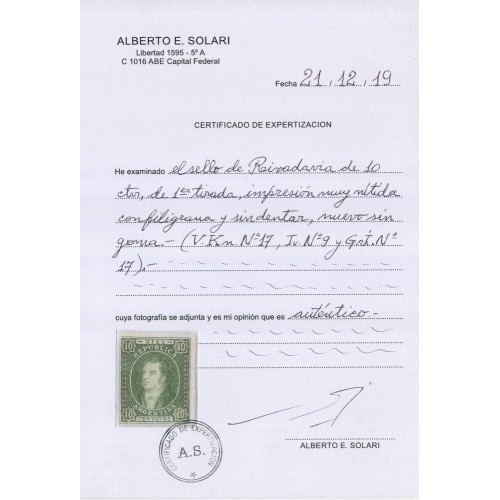 ALBERTO E. SOLARI
Libertad 1595 - 5º A
C 1016 ABE Capital Federal
Fecha 21 / 12 / 19
CERTIFICADO DE EXPERTIZACION
He examinado el sello de Rivadavia de 10
ctvs, de 1era tirada, impresión muy nítida
con filigrana y sin dentar, nuevo sin
goma.- (V.K n. Nº17, Iv. Nº9 y G.J. Nº
17).-
cuya fotografía se adjunta y es mi opinión que es auténtico.-
10 10
REPUBLICA
ARGENTINA
10 CENTAVOS 10
CERTIFICADO DE EXPERTIZACION
A.S.
ALBERTO E. SOLARI